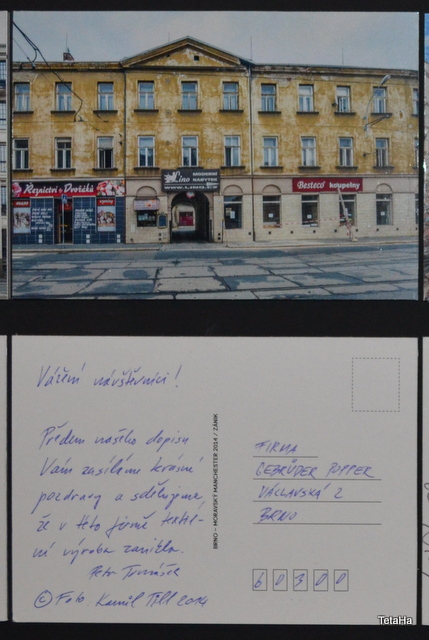 Řeznictví u Dvořáků
Lino MODERNÍ NÁBYTEK
WWW.LINO.CZ
Besteco koupelny
Vážení návštěvníci!
Předem našeho dopisu
Vám zasíláme krásné
pozdravy a sdělujeme,
že v této firmě textil-
ní výroba zanikla.
Petr Tomášek
© Foto Kamil Till 2014
BRNO – MORAVSKÝ MANCHESTER 2014 / ZÁNIK
FIRMA
GEBRÜDER POPPER
VÁCLAVSKÁ 2
BRNO
60300
TetaHa